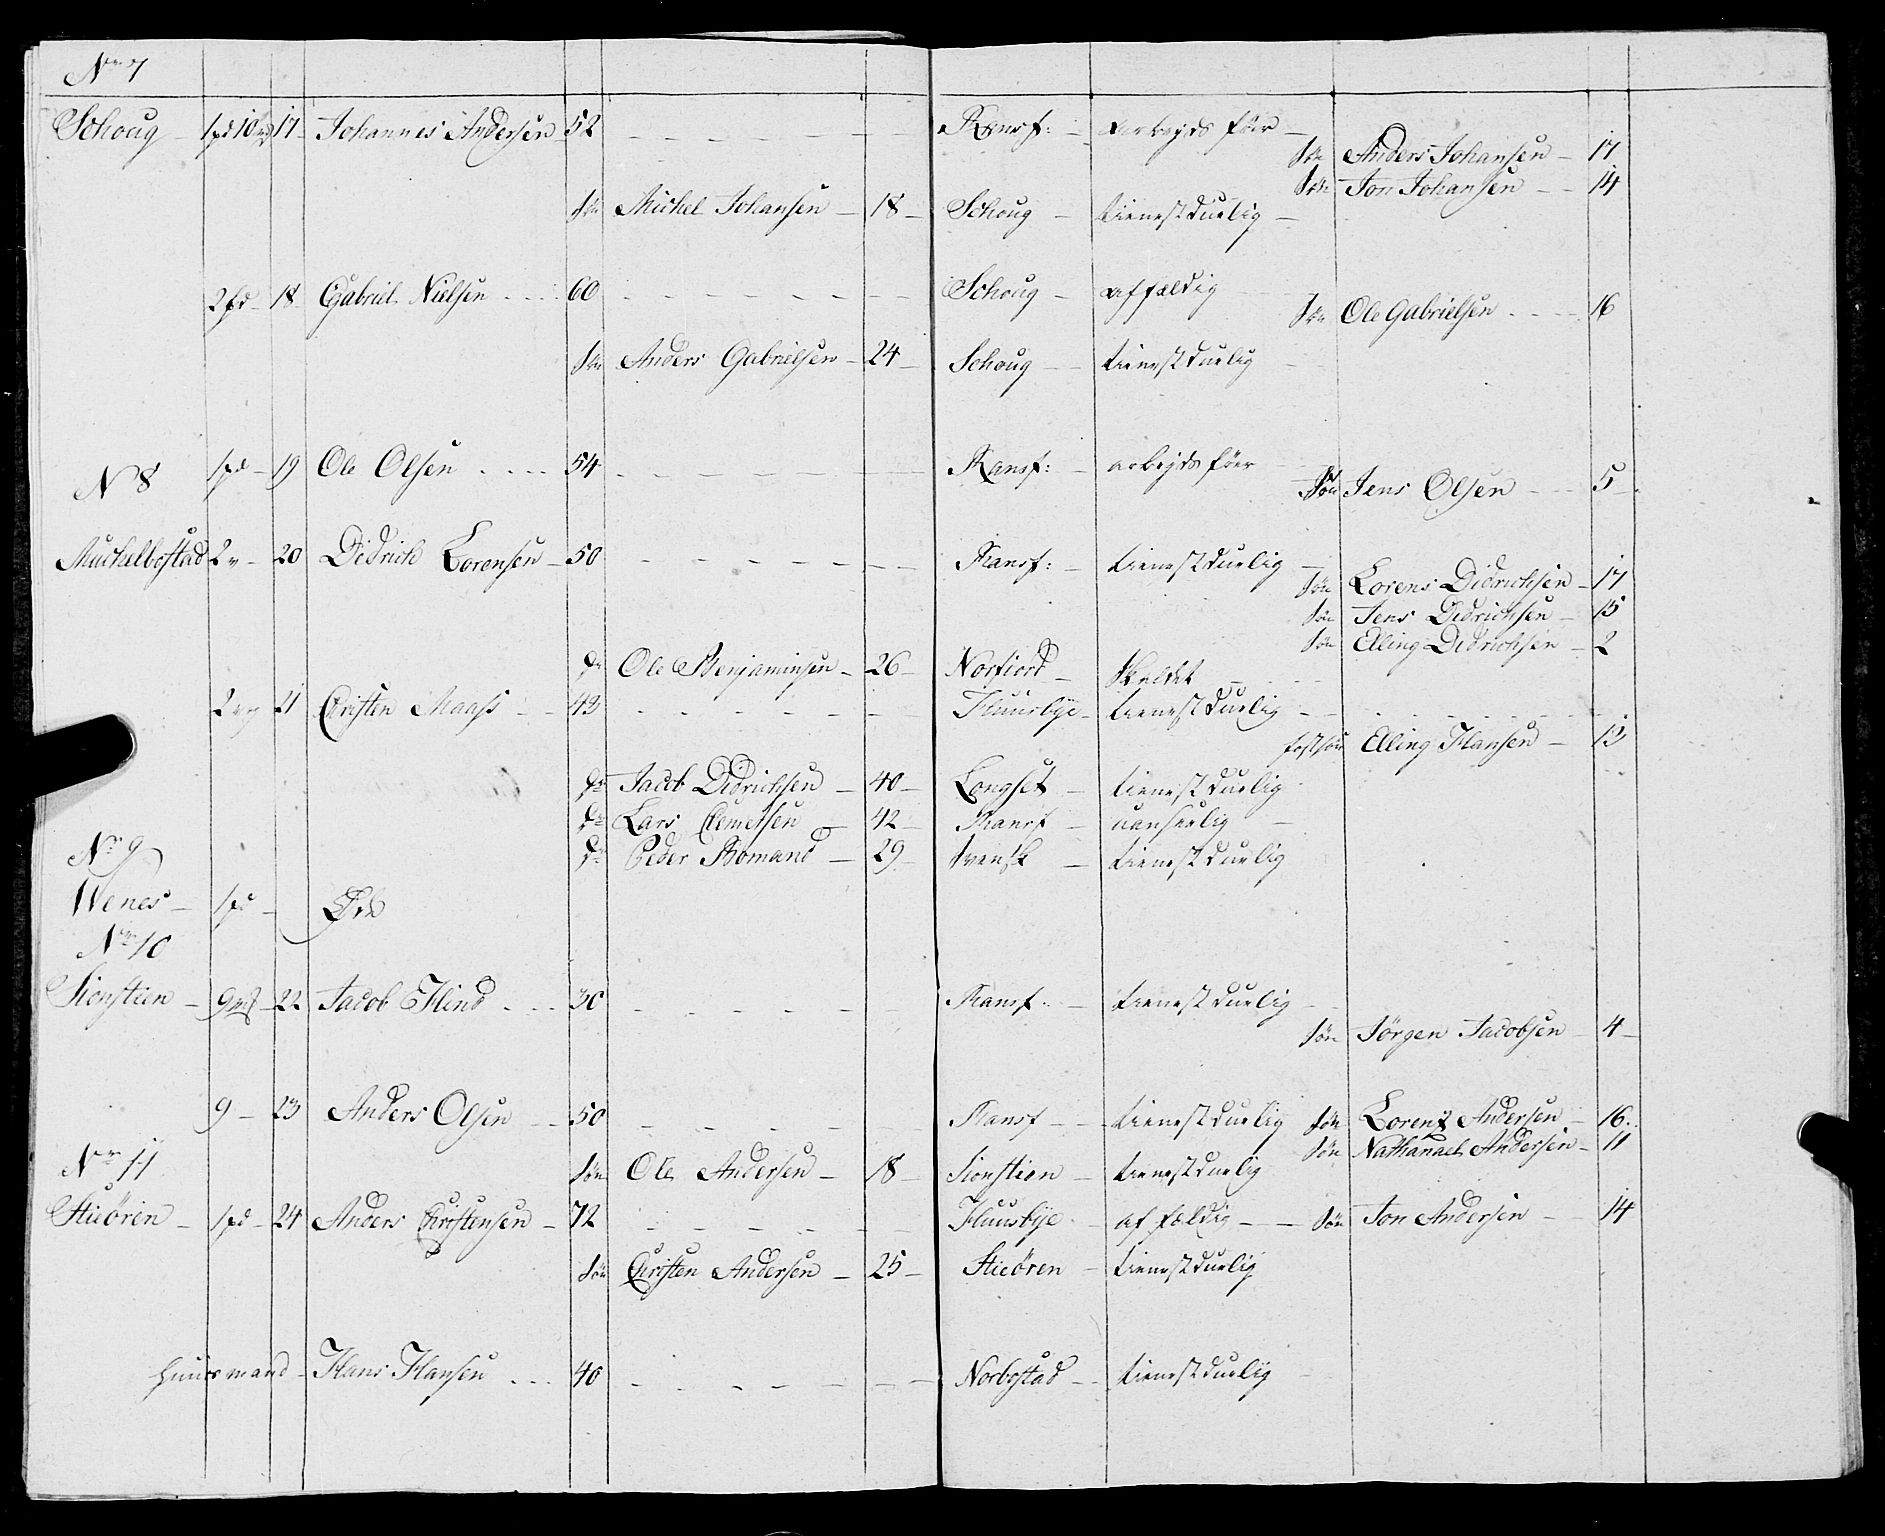 No 7
Schoug 17 Johannes Andersen 52 Ranf: arbejds föer
Søn Anders Johansen 17
Søn Jon Johansen 14
Søn Michel Johansen 18 Schoug tienestduelig
2 pd 18 Gabriel Nielsen 60 Schoug affældig
Søn Ole Gabrielsen 16
Søn Anders Gabrielsen 24 Schoug tienestduelig
N 8 1 pd 19 Ole Olsen 54 Ranf: arbejds föer
Søn Jens Olsen 5
Muchelbostad 2 20 Didrich Lorensen 50 Ranf: tienestduelig
Søn Lorens Didrichsen 17
Søn Jens Didrichsen 15
Søn Elling Didrichsen 2
Dr Ole Benjaminsen 26 Norfiord Skaldet
2 21 Christen Maass 43 Huusbye tienestduelig
fostsön Elling Hansen 13
Dr Jacob Didrichsen 40 Longset tienestduelig
Dr Lars Clemetsen 42 Ranf uanseelig
No 9 Dr Peder Bomand 29 Svensk tienestduelig
Wenes 1 pd Øde
No 10
Sionstien 22 Jacob Hind 30 Ranf. tienestduelig
Søn Jørgen Jacobsen 4
9 23 Anders Olsen 50 Ranf tienestduelig Søn Lorentz Andersen 16
Søn Nathanael Andersen 11
No 11 Søn Ole Andersen 18 Sionstien tienestduelig
Stieören 1 pd 24 Anders Christensen 72 Huusbye affældig Søn Jon Andersen 14
Søn Christen Andersen 25 Stieören tienestduelig
huusmand Hans Hansen 40 Norbostad tienestduelig